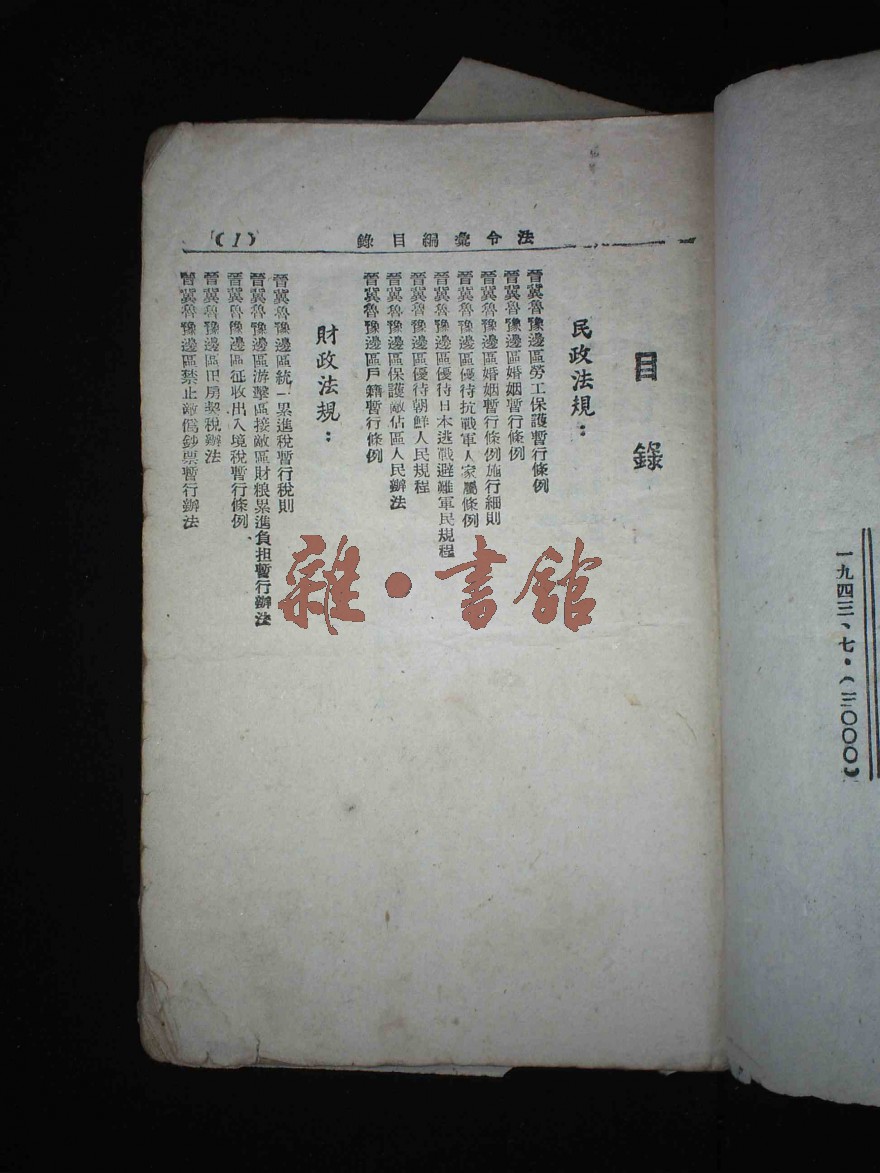 一九四三、七·(三〇〇〇)
法令彙編目錄
(1)
目錄
民政法規：
晉冀魯豫邊區勞工保護暫行條例
晉冀魯豫邊區婚姻暫行條例
晉冀魯豫邊區婚姻暫行條例施行細則
晉冀魯豫邊區優待抗戰軍人家屬條例
晉冀魯豫邊區優待日本逃戰避難軍民規程
晉冀魯豫邊區優待朝鮮人民規程
晉冀魯豫邊區保護敵佔區人民辦法
晉冀魯豫邊區戶籍暫行條例
財政法規：
晉冀魯豫邊區統一累進稅暫行稅則
晉冀魯豫邊區游擊區接敵區財粮累進負担暫行辦法
晉冀魯豫邊區征收出入境稅暫行條例
晉冀魯豫邊區田房契稅辦法
晉冀魯豫邊區禁止敵偽鈔票暫行辦法
雜·書館